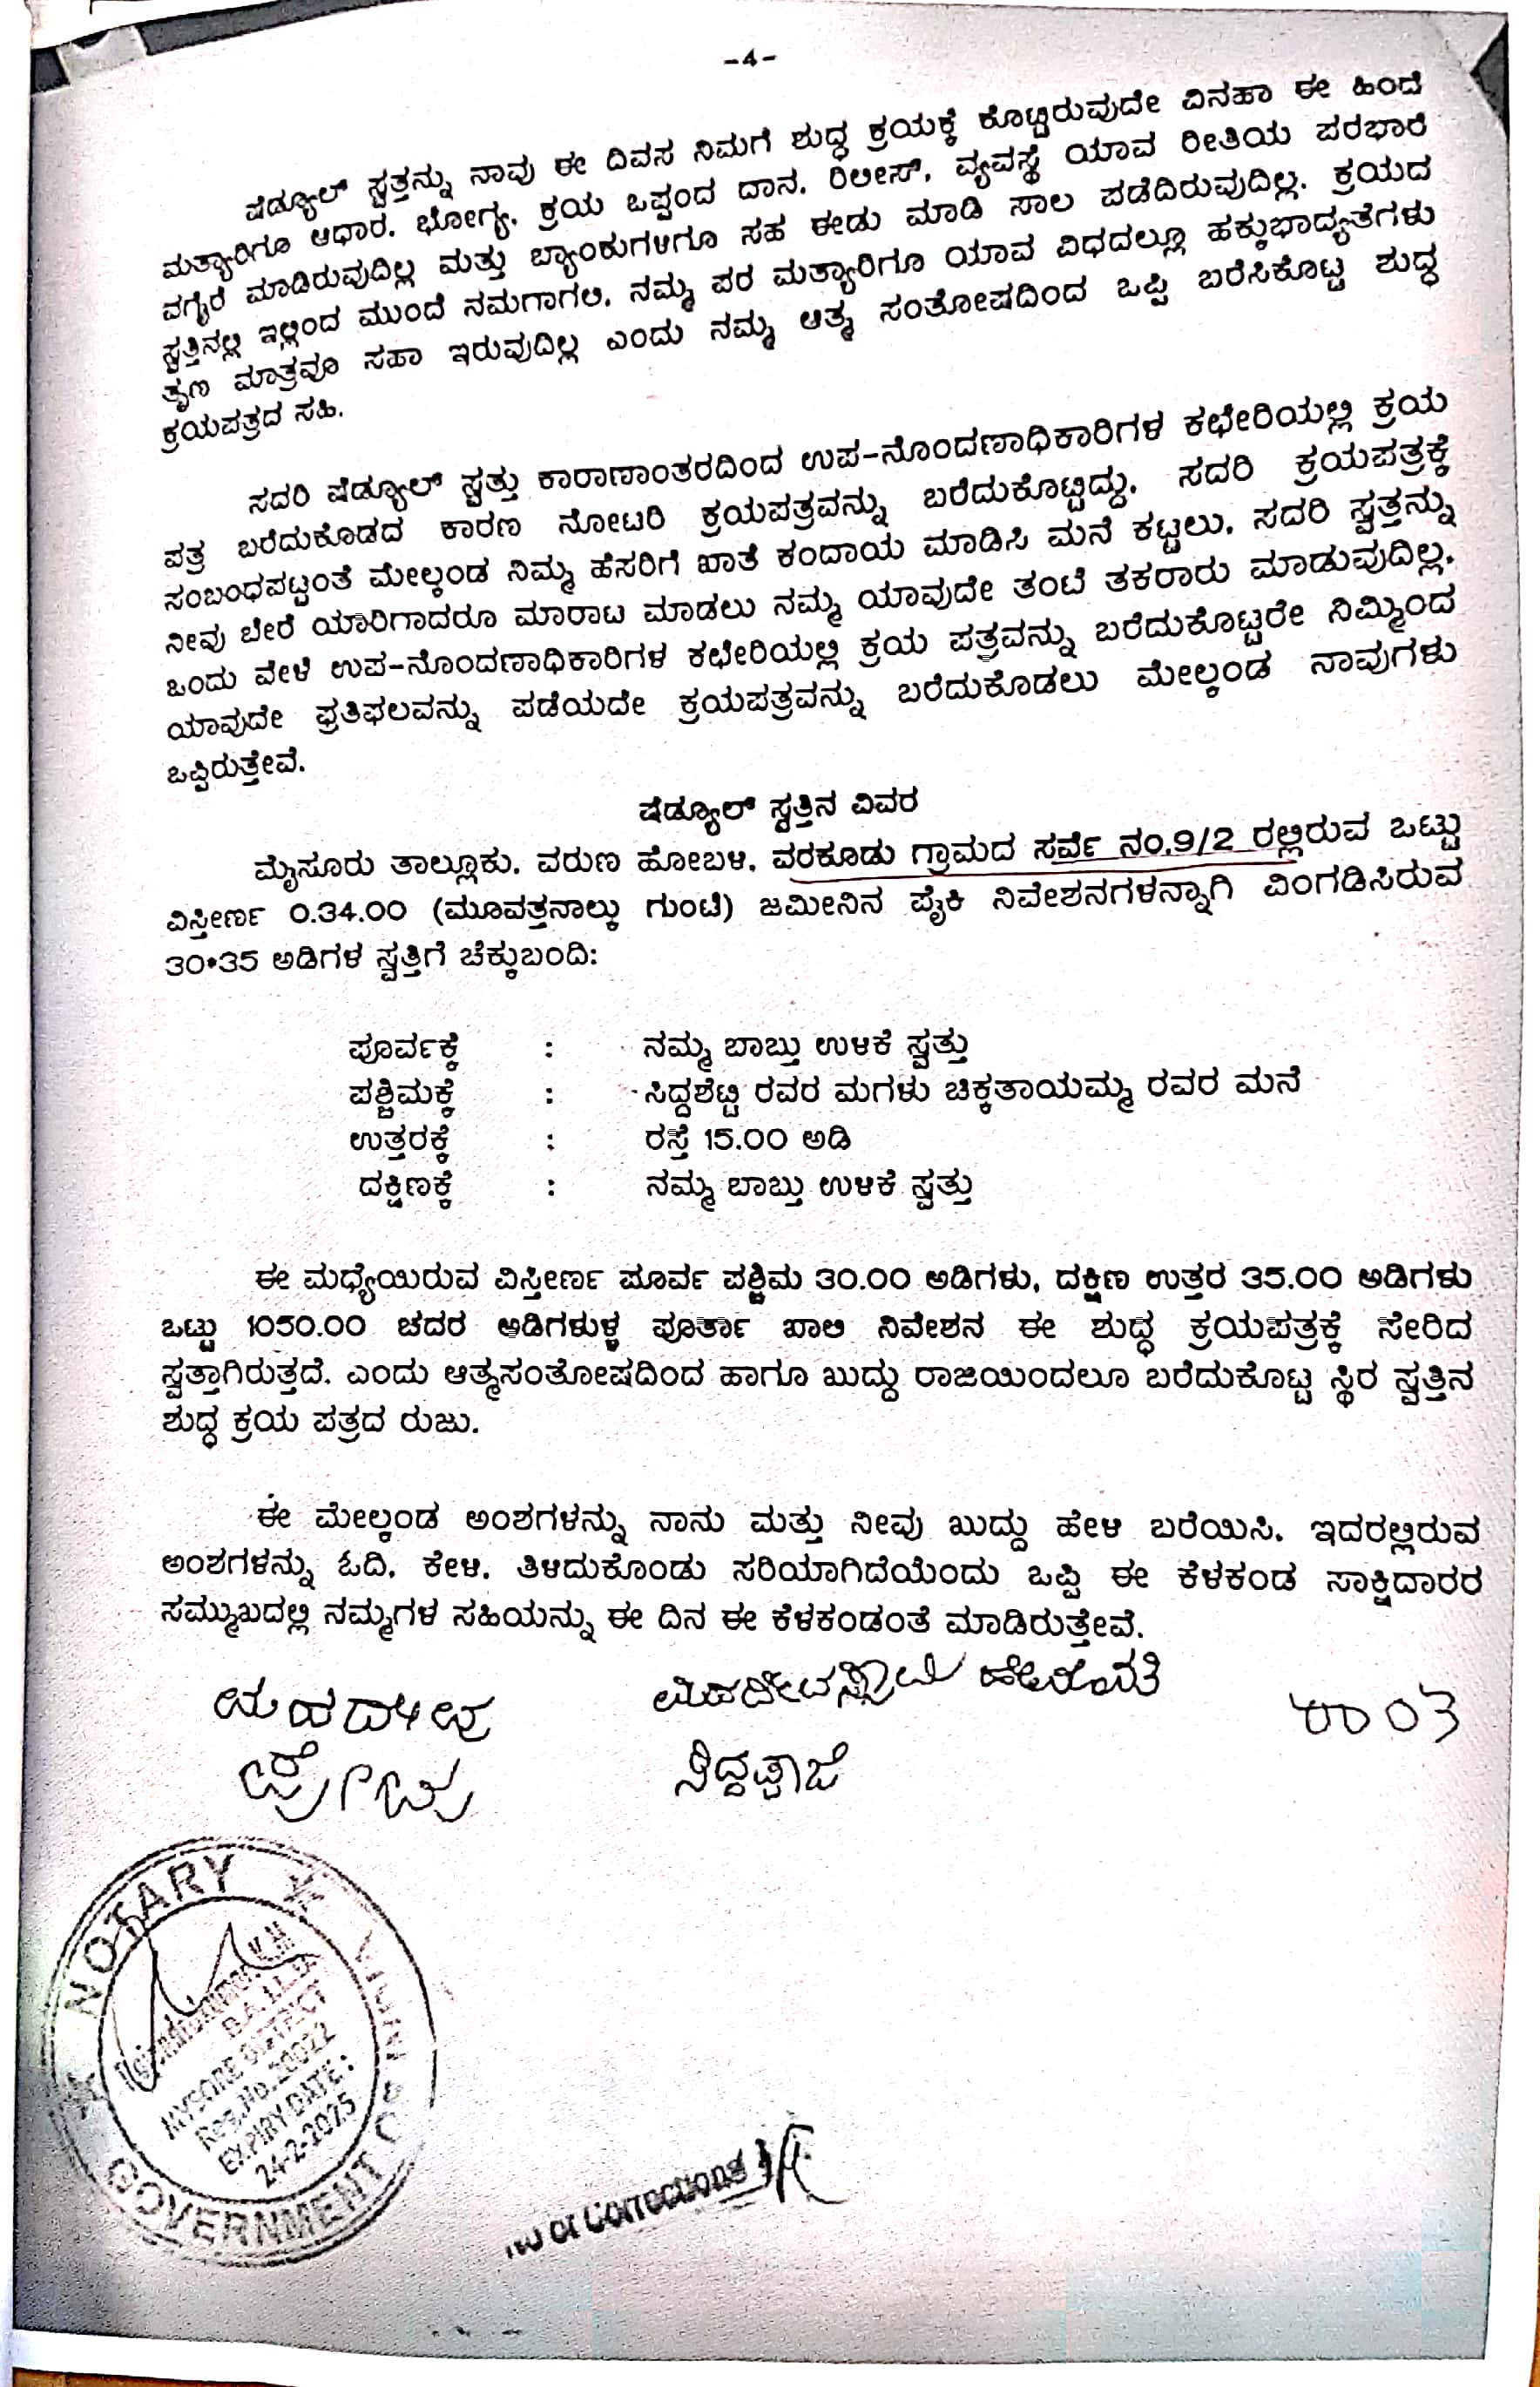 -4-
ಷೆಡ್ಯೂಲ್ ಸ್ವತ್ತನ್ನು ನಾವು ಈ ದಿವಸ ನಿಮಗೆ ಶುದ್ಧ ಕ್ರಯಕ್ಕೆ ಕೊಟ್ಟಿರುವುದೇ ವಿನಹಾ ಈ ಹಿಂದೆ
ಮತ್ಯಾರಿಗೂ ಆಧಾರ, ಭೋಗ್ಯ, ಕ್ರಯ ಒಪ್ಪಂದ ದಾನ, ರಿಲೀಸ್, ವ್ಯವಸ್ಥೆ ಯಾವ ರೀತಿಯ ಪರಭಾರೆ
ವಗೈರೆ ಮಾಡಿರುವುದಿಲ್ಲ ಮತ್ತು ಬ್ಯಾಂಕುಗಳಿಗೂ ಸಹ ಈಡು ಮಾಡಿ ಸಾಲ ಪಡೆದಿರುವುದಿಲ್ಲ. ಕ್ರಯದ
ಸ್ವತ್ತಿನಲ್ಲಿ ಇಲ್ಲಿಂದ ಮುಂದೆ ನಮಗಾಗಲಿ, ನಮ್ಮ ಪರ ಮತ್ಯಾರಿಗೂ ಯಾವ ವಿಧದಲ್ಲೂ ಹಕ್ಕುಭಾದ್ಯತೆಗಳು
ತೃಣ ಮಾತ್ರವೂ ಸಹಾ ಇರುವುದಿಲ್ಲ ಎಂದು ನಮ್ಮ ಆತ್ಮ ಸಂತೋಷದಿಂದ ಒಪ್ಪಿ ಬರೆಸಿಕೊಟ್ಟ ಶುದ್ಧ
ಕ್ರಯಪತ್ರದ ಸಹಿ.
ಸದರಿ ಷೆಡ್ಯೂಲ್ ಸ್ವತ್ತು ಕಾರಾಣಾಂತರದಿಂದ ಉಪ-ನೊಂದಣಾಧಿಕಾರಿಗಳ ಕಛೇರಿಯಲ್ಲಿ ಕ್ರಯ
ಪತ್ರ ಬರೆದುಕೊಡದ ಕಾರಣ ನೋಟರಿ ಕ್ರಯಪತ್ರವನ್ನು ಬರೆದುಕೊಟ್ಟಿದ್ದು, ಸದರಿ ಕ್ರಯಪತ್ರಕ್ಕೆ
ಸಂಬಂಧಪಟ್ಟಂತೆ ಮೇಲ್ಕಂಡ ನಿಮ್ಮ ಹೆಸರಿಗೆ ಖಾತೆ ಕಂದಾಯ ಮಾಡಿಸಿ ಮನೆ ಕಟ್ಟಲು, ಸದರಿ ಸ್ವತ್ತನ್ನು
ನೀವು ಬೇರೆ ಯಾರಿಗಾದರೂ ಮಾರಾಟ ಮಾಡಲು ನಮ್ಮ ಯಾವುದೇ ತಂಟೆ ತಕರಾರು ಮಾಡುವುದಿಲ್ಲ.
ಒಂದು ವೇಳೆ ಉಪ-ನೊಂದಣಾಧಿಕಾರಿಗಳ ಕಛೇರಿಯಲ್ಲಿ ಕ್ರಯ ಪತ್ರವನ್ನು ಬರೆದುಕೊಟ್ಟರೇ ನಿಮ್ಮಿಂದ
ಯಾವುದೇ ಪ್ರತಿಫಲವನ್ನು ಪಡೆಯದೇ ಕ್ರಯಪತ್ರವನ್ನು ಬರೆದುಕೊಡಲು ಮೇಲ್ಕಂಡ ನಾವುಗಳು
ಒಪ್ಪಿರುತ್ತೇವೆ.
ಷೆಡ್ಯೂಲ್ ಸ್ವತ್ತಿನ ವಿವರ
ಮೈಸೂರು ತಾಲ್ಲೂಕು, ವರುಣ ಹೋಬಳಿ, ವರಕೂಡು ಗ್ರಾಮದ ಸರ್ವೆ ನಂ.9/2 ರಲ್ಲಿರುವ ಒಟ್ಟು
ವಿಸ್ತೀರ್ಣ 0.34.00 (ಮೂವತ್ತನಾಲ್ಕು ಗುಂಟೆ) ಜಮೀನಿನ ಪೈಕಿ ನಿವೇಶನಗಳನ್ನಾಗಿ ವಿಂಗಡಿಸಿರುವ
30*35 ಅಡಿಗಳ ಸ್ವತ್ತಿಗೆ ಚೆಕ್ಕುಬಂದಿ:
ಪೂರ್ವಕ್ಕೆ : ನಮ್ಮ ಬಾಬ್ತು ಉಳಿಕೆ ಸ್ವತ್ತು
ಪಶ್ಚಿಮಕ್ಕೆ : ಸಿದ್ದಶೆಟ್ಟಿ ರವರ ಮಗಳು ಚಿಕ್ಕತಾಯಮ್ಮ ರವರ ಮನೆ
ಉತ್ತರಕ್ಕೆ : ರಸ್ತೆ 15.00 ಅಡಿ
ದಕ್ಷಿಣಕ್ಕೆ : ನಮ್ಮ ಬಾಬ್ತು ಉಳಿಕೆ ಸ್ವತ್ತು
ಈ ಮಧ್ಯೆಯಿರುವ ವಿಸ್ತೀರ್ಣ ಪೂರ್ವ ಪಶ್ಚಿಮ 30.00 ಅಡಿಗಳು, ದಕ್ಷಿಣ ಉತ್ತರ 35.00 ಅಡಿಗಳು
ಒಟ್ಟು 1050.00 ಚದರ ಅಡಿಗಳುಳ್ಳ ಪೂರ್ತಾ ಖಾಲಿ ನಿವೇಶನ ಈ ಶುದ್ಧ ಕ್ರಯಪತ್ರಕ್ಕೆ ಸೇರಿದ
ಸ್ವತ್ತಾಗಿರುತ್ತದೆ. ಎಂದು ಆತ್ಮಸಂತೋಷದಿಂದ ಹಾಗೂ ಖುದ್ದು ರಾಜಿಯಿಂದಲೂ ಬರೆದುಕೊಟ್ಟ ಸ್ಥಿರ ಸ್ವತ್ತಿನ
ಶುದ್ಧ ಕ್ರಯ ಪತ್ರದ ರುಜು.
ಈ ಮೇಲ್ಕಂಡ ಅಂಶಗಳನ್ನು ನಾನು ಮತ್ತು ನೀವು ಖುದ್ದು ಹೇಳಿ ಬರೆಯಿಸಿ, ಇದರಲ್ಲಿರುವ
ಅಂಶಗಳನ್ನು ಓದಿ, ಕೇಳಿ, ತಿಳಿದುಕೊಂಡು ಸರಿಯಾಗಿದೆಯೆಂದು ಒಪ್ಪಿ ಈ ಕೆಳಕಂಡ ಸಾಕ್ಷಿದಾರರ
ಸಮ್ಮುಖದಲ್ಲಿ ನಮ್ಮಗಳ ಸಹಿಯನ್ನು ಈ ದಿನ ಈ ಕೆಳಕಂಡಂತೆ ಮಾಡಿರುತ್ತೇವೆ.
ಮಹದೇವ
ಸಿದ್ದಪ್ಪಾಜಿ
NOTARY
B.A.,LL.B.
MYSORE DISTRICT
Reg.No.20022
EXPIRY DATE:
24-2-2025
GOVERNMENT
No of Corrections